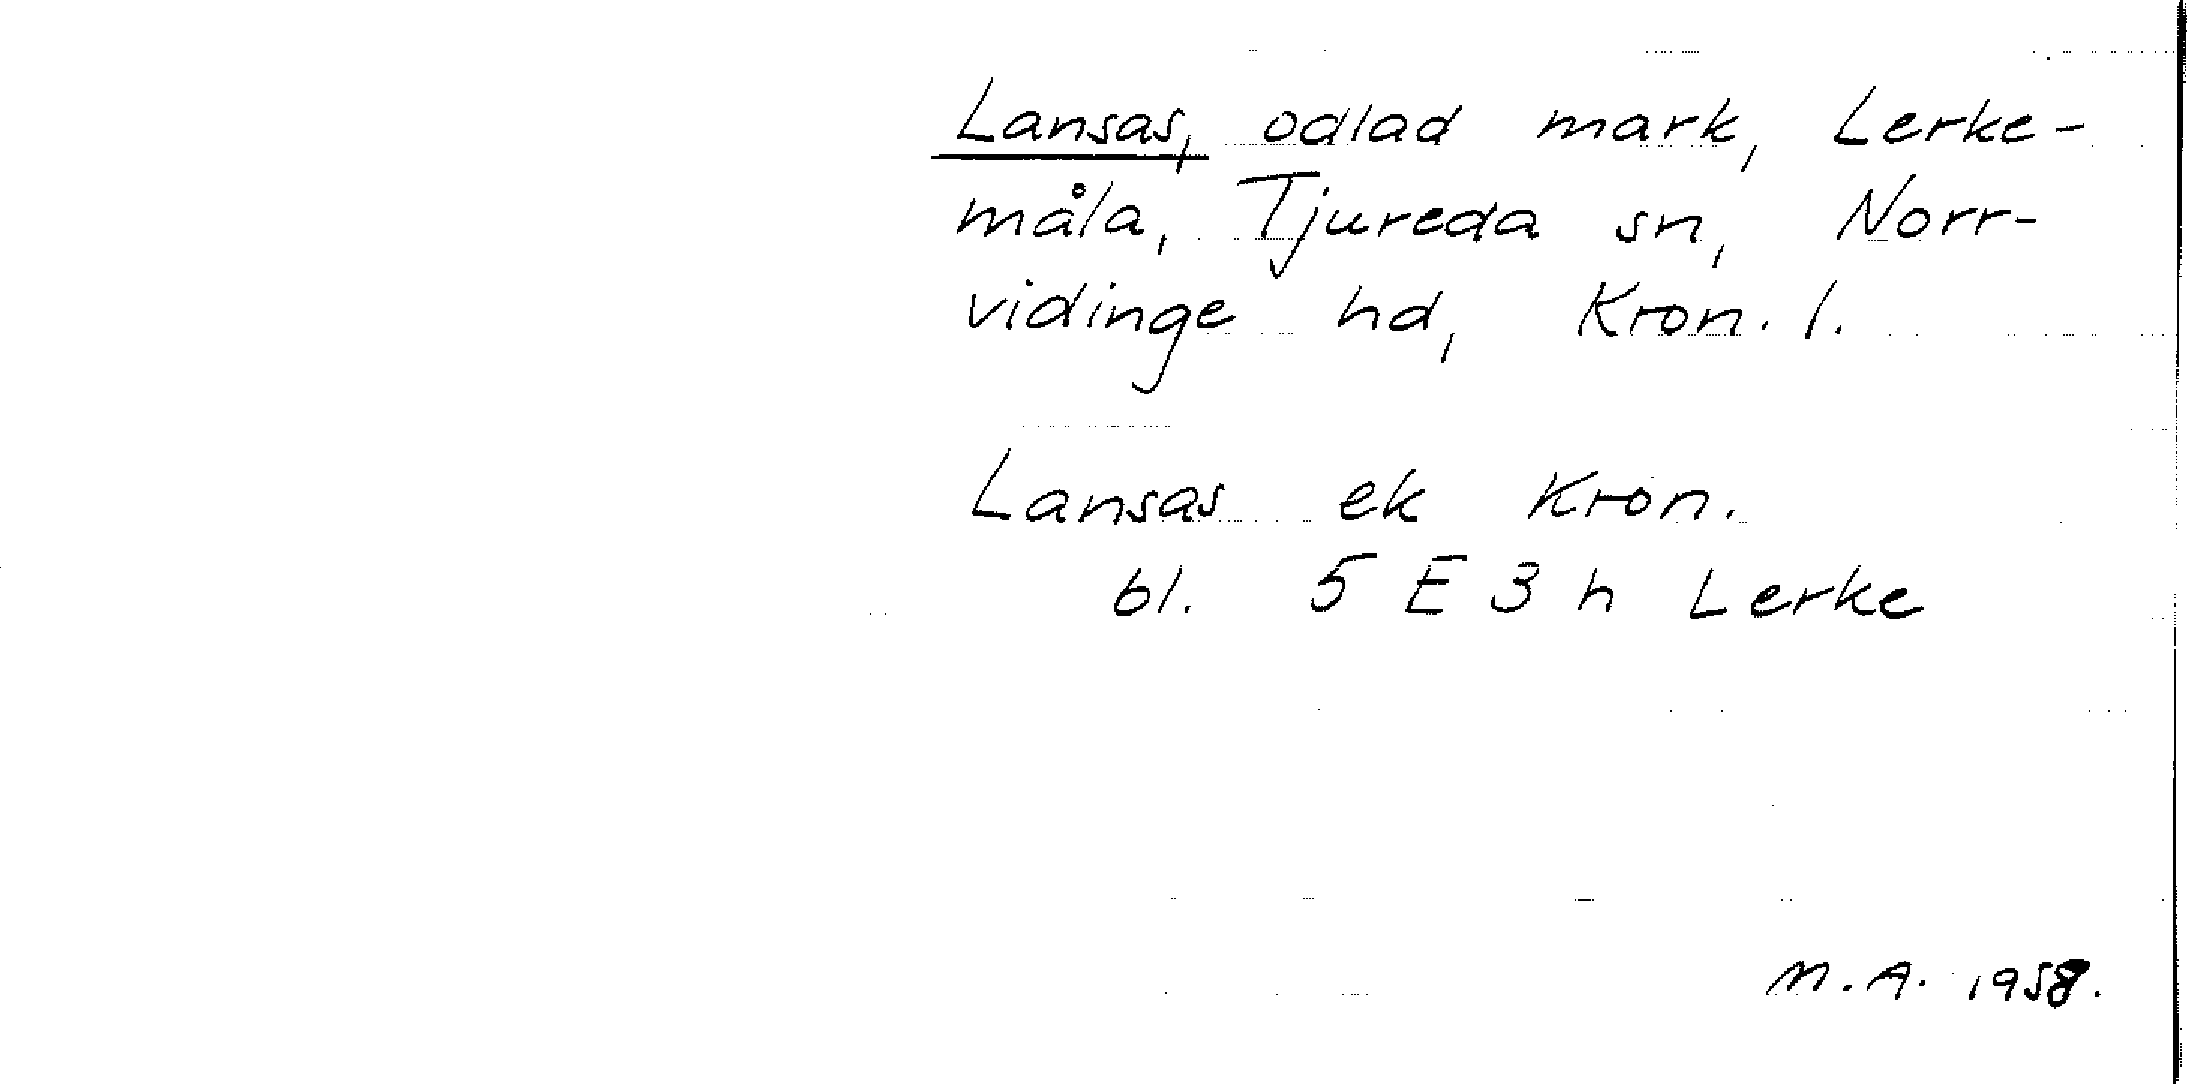 Lansas, odlad mark, Lerke-
måla, Tjureda sn, Norr-
vidinge hd, Kron. l.
Lansas ek Kron.
bl. 5 E 3 h Lerke
M.A. 1958.